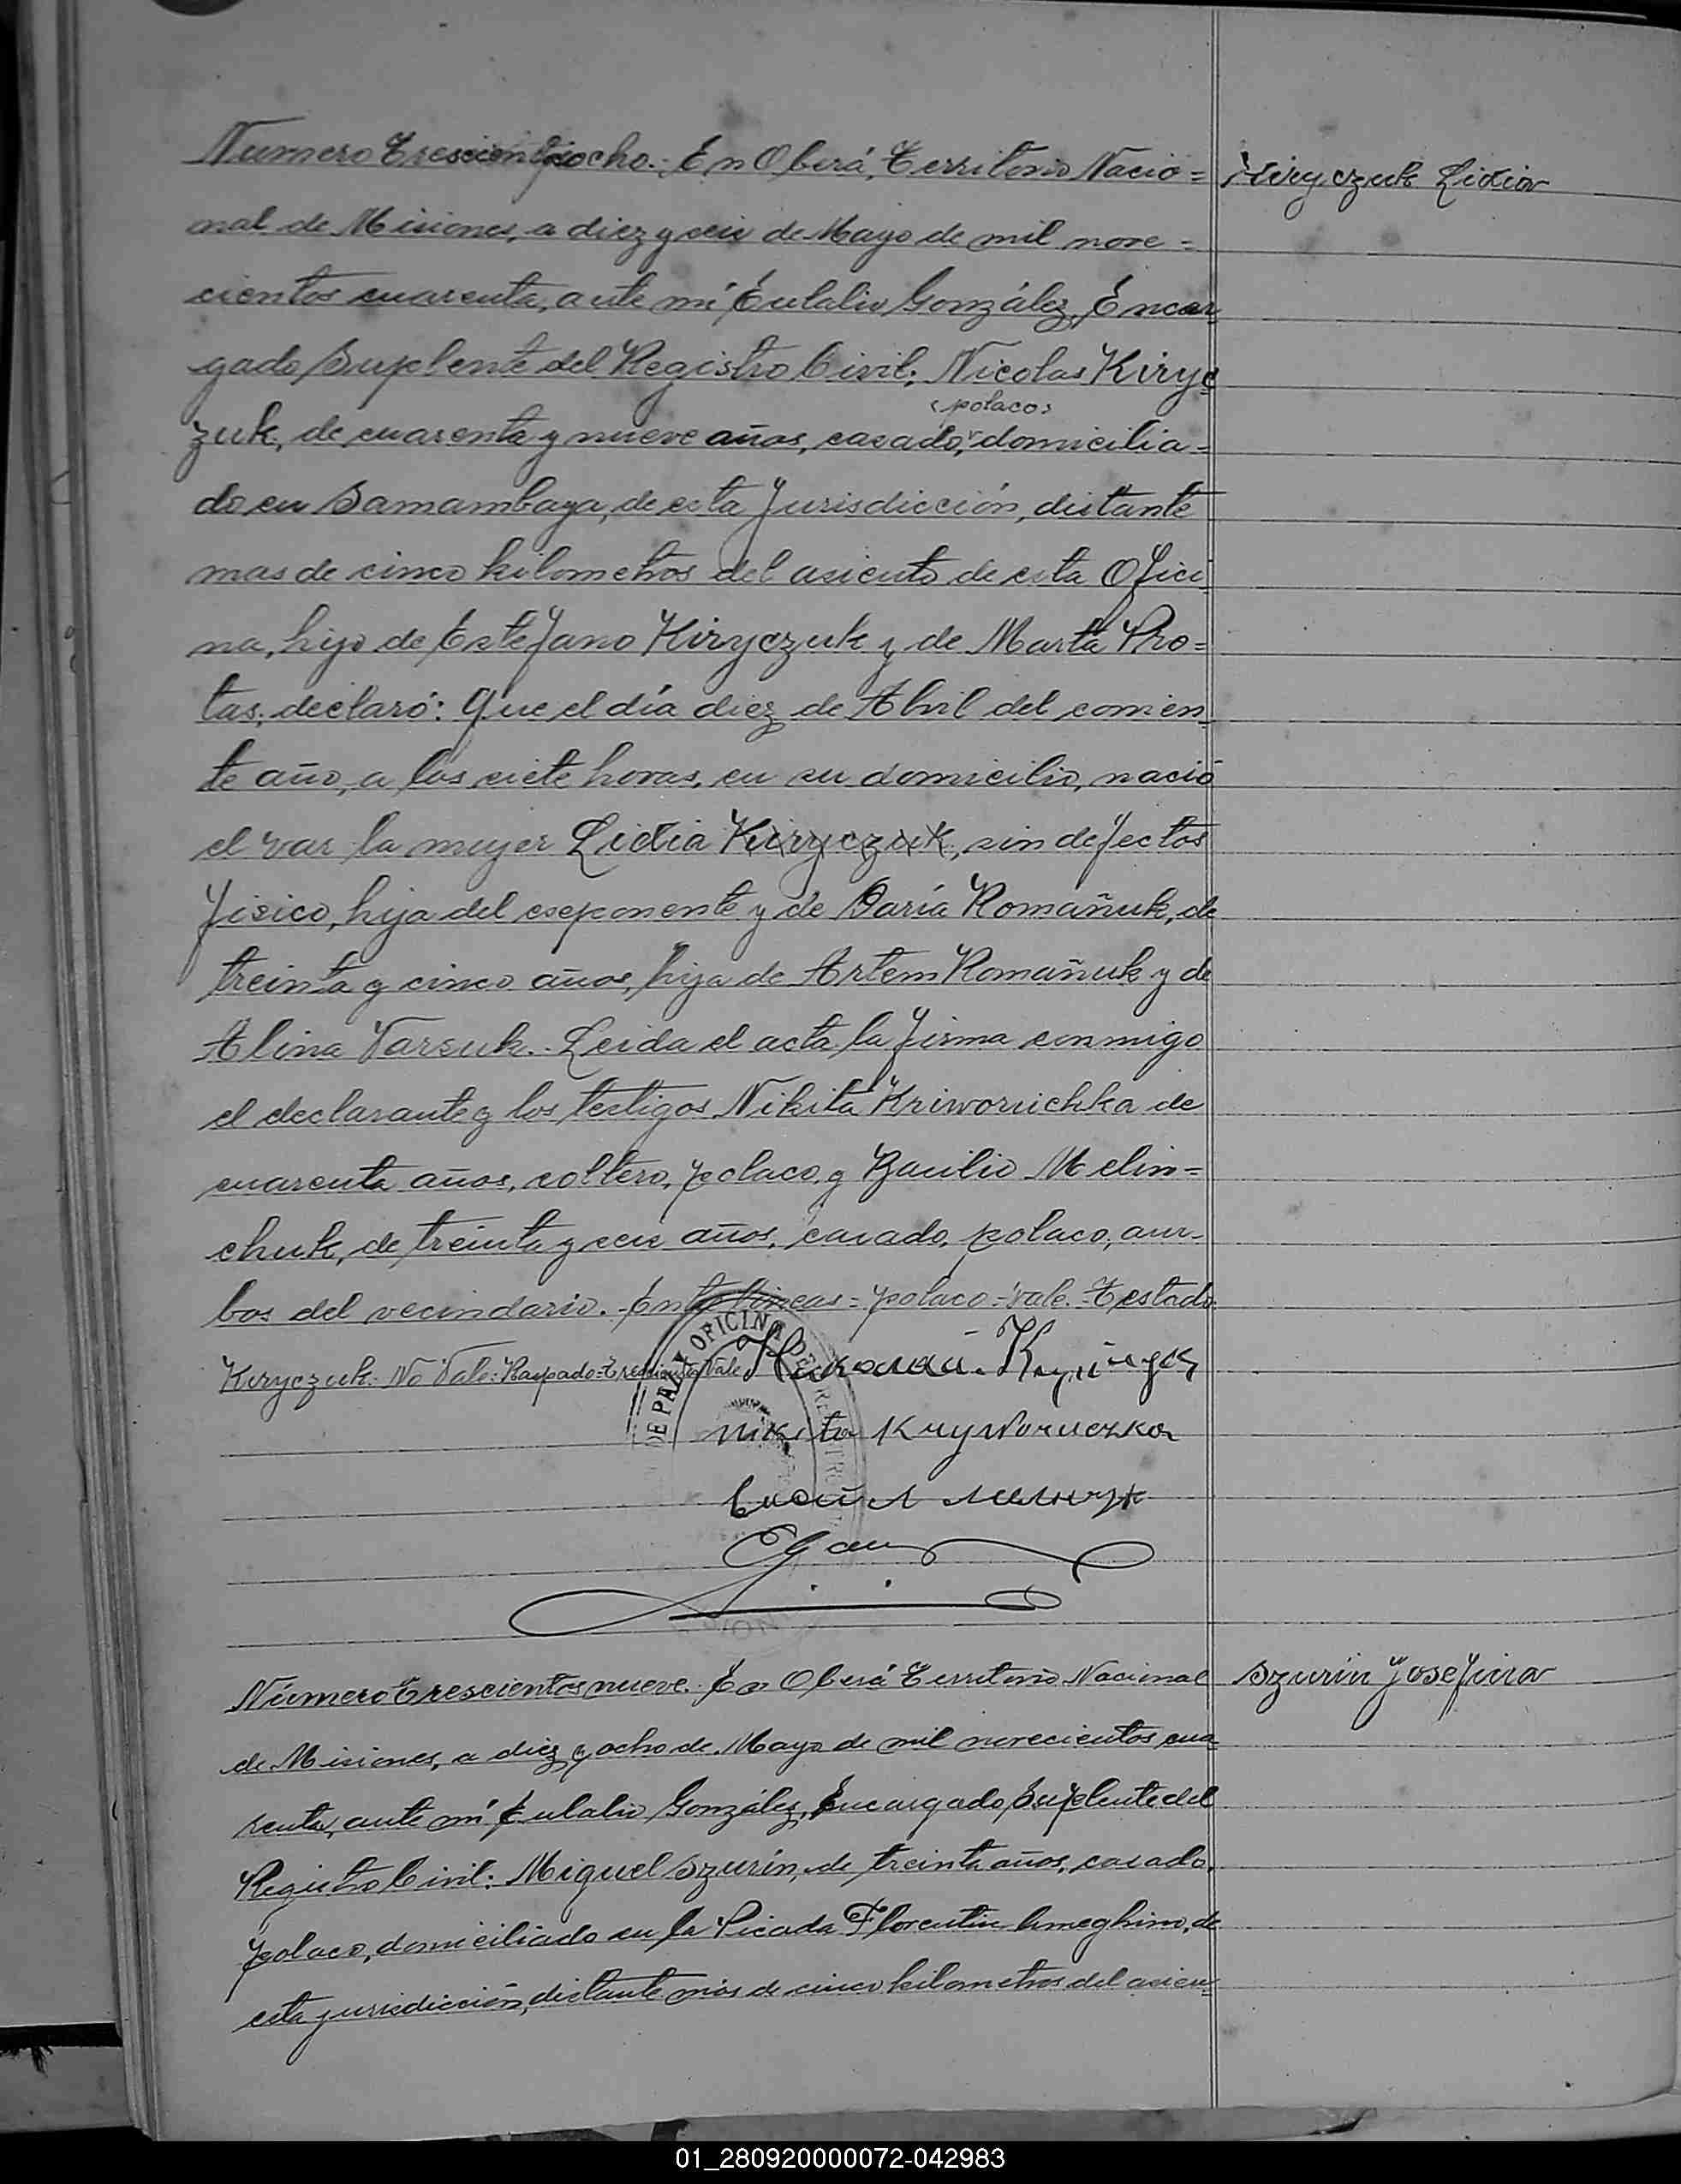 Numero Trescientos ocho.- En Oberá, Territorio Nacio=
Kiryczuk Lidia
nal de Misiones, a diez y seis de Mayo de mil nove=
cientos cuarenta, ante mí Eulalio González, Encar-
gado Suplente del Registro Civil; Nicolas Kiryc
(polaco)
zuk, de cuarenta y nueve años, casado, domicilia=
do en Samambaya, de esta Jurisdicción, distante
mas de cinco kilometros del asiento de esta Ofici
na, hijo de Estefano Kiryczuk y de Marta Pro=
tas, declaró: Que el día diez de Abril del corrien
te año, a las siete horas, en su domicilio, nació
el var la mujer Lidia Kiryczuk, sin defectos
fisico, hija del exponente y de Daría Romañuk, de
treinta y cinco años, hija de Artem Romañuk y de
Alina Varsuk.- Leida el acta la firma conmigo
el declarante y los testigos Nikita Kriworuchka de
cuarenta años, soltero, polaco, y Basilio Melin=
chuk, de treinta y seis años, casado, polaco, am-
bos del vecindario.- Entre lineas = polaco - Vale.- Testado
Kiryczuk- No Vale: Raspado= Trescientos Vale
OFICINA DE
DE PAZ Y
Nikita Kryworuczka
Número Trescientos nueve. En Oberá Territorio Nacional
Szurin Josefina
de Misiones, a diez y ocho de Mayo de mil novecientos cua
renta, ante mí Eulalio González, Encargado Suplente del
Registro Civil: Miguel Szurin, de treinta años, casado,
polaco, domiciliado en la Picada Florentin Ameghino, de
esta jurisdicción, distante más de cinco kilometros del asien=
01_280920000072-042983